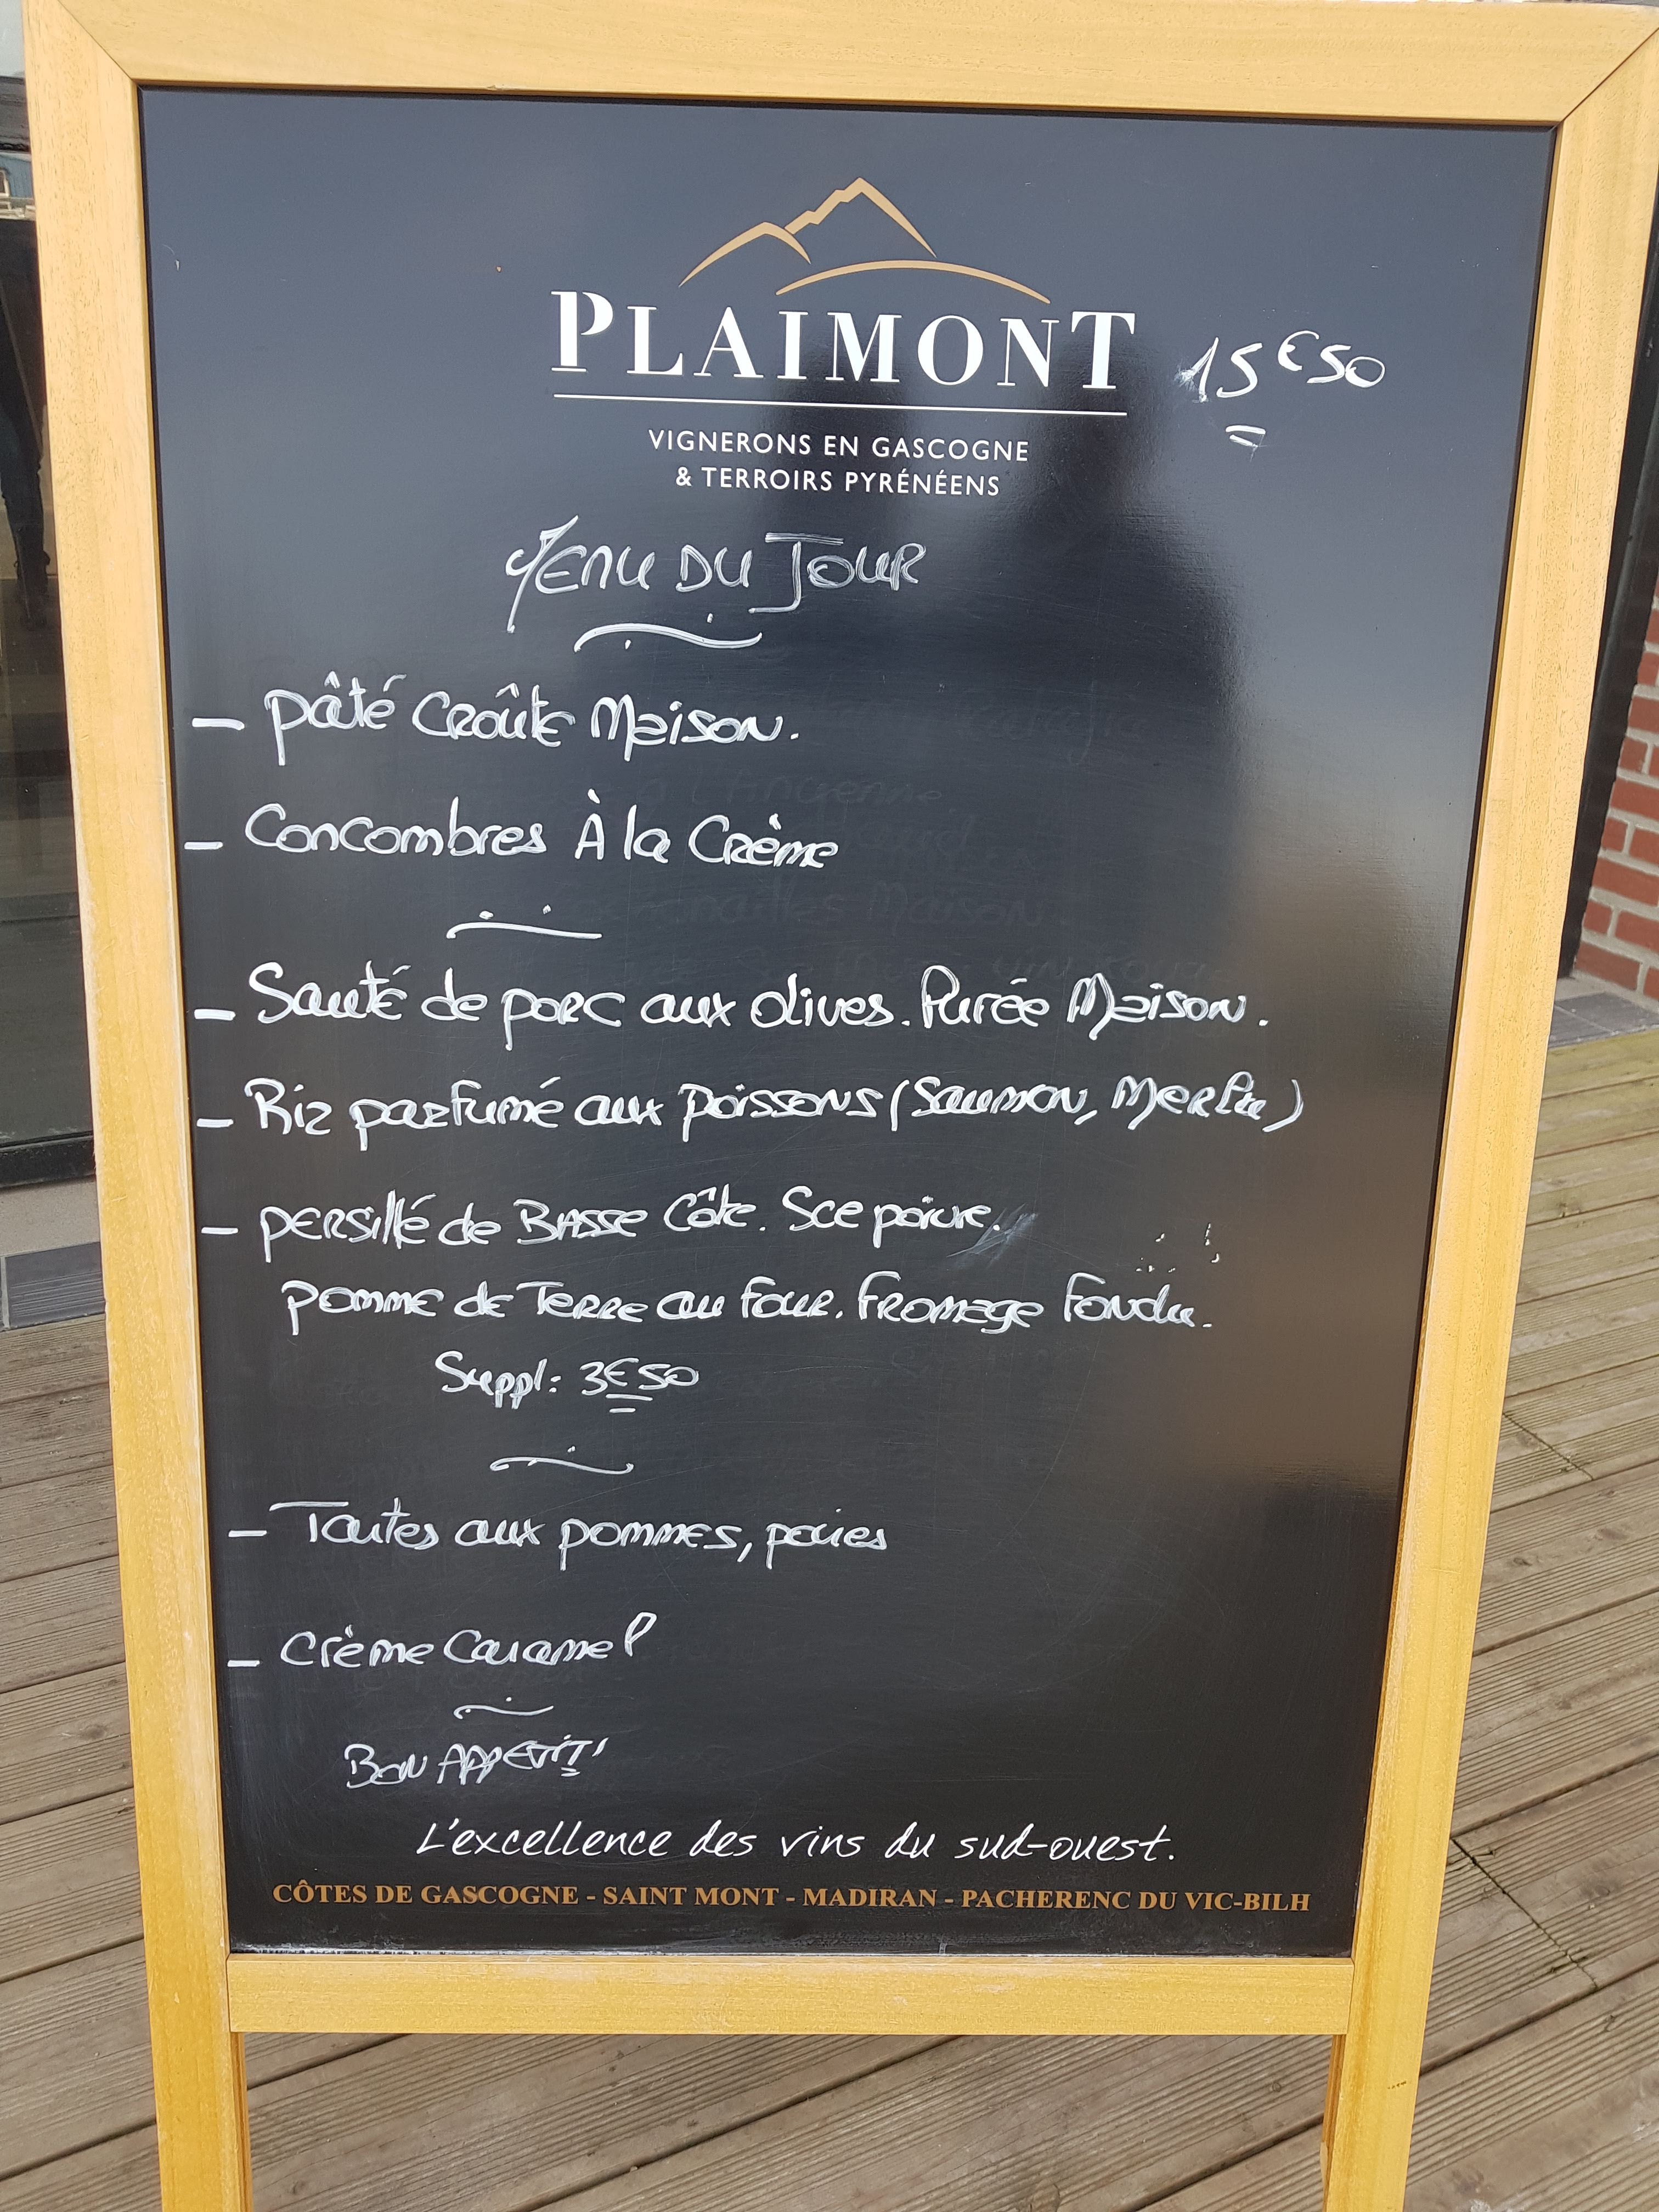 PLAIMONT 15€50
VIGNERONS EN GASCOGNE
& TERROIRS PYRÉNÉENS
MENU DU JOUR
- pâté Croûte Maison.
- Concombres À la Crème
- Sauté de porc aux olives. Purée Maison.
- Riz parfumé aux poissons (Saumon, Merlu)
- PERSillé de BASSE Côte. Sce poivre.
pomme de Terre au Four. Fromage Fondu.
Suppl: 3€50
- Tartes aux pommes, poires
- Crème Caramel
BON APPETIT!
L'excellence des vins du sud-ouest.
CÔTES DE GASCOGNE - SAINT MONT - MADIRAN - PACHERENC DU VIC-BILH